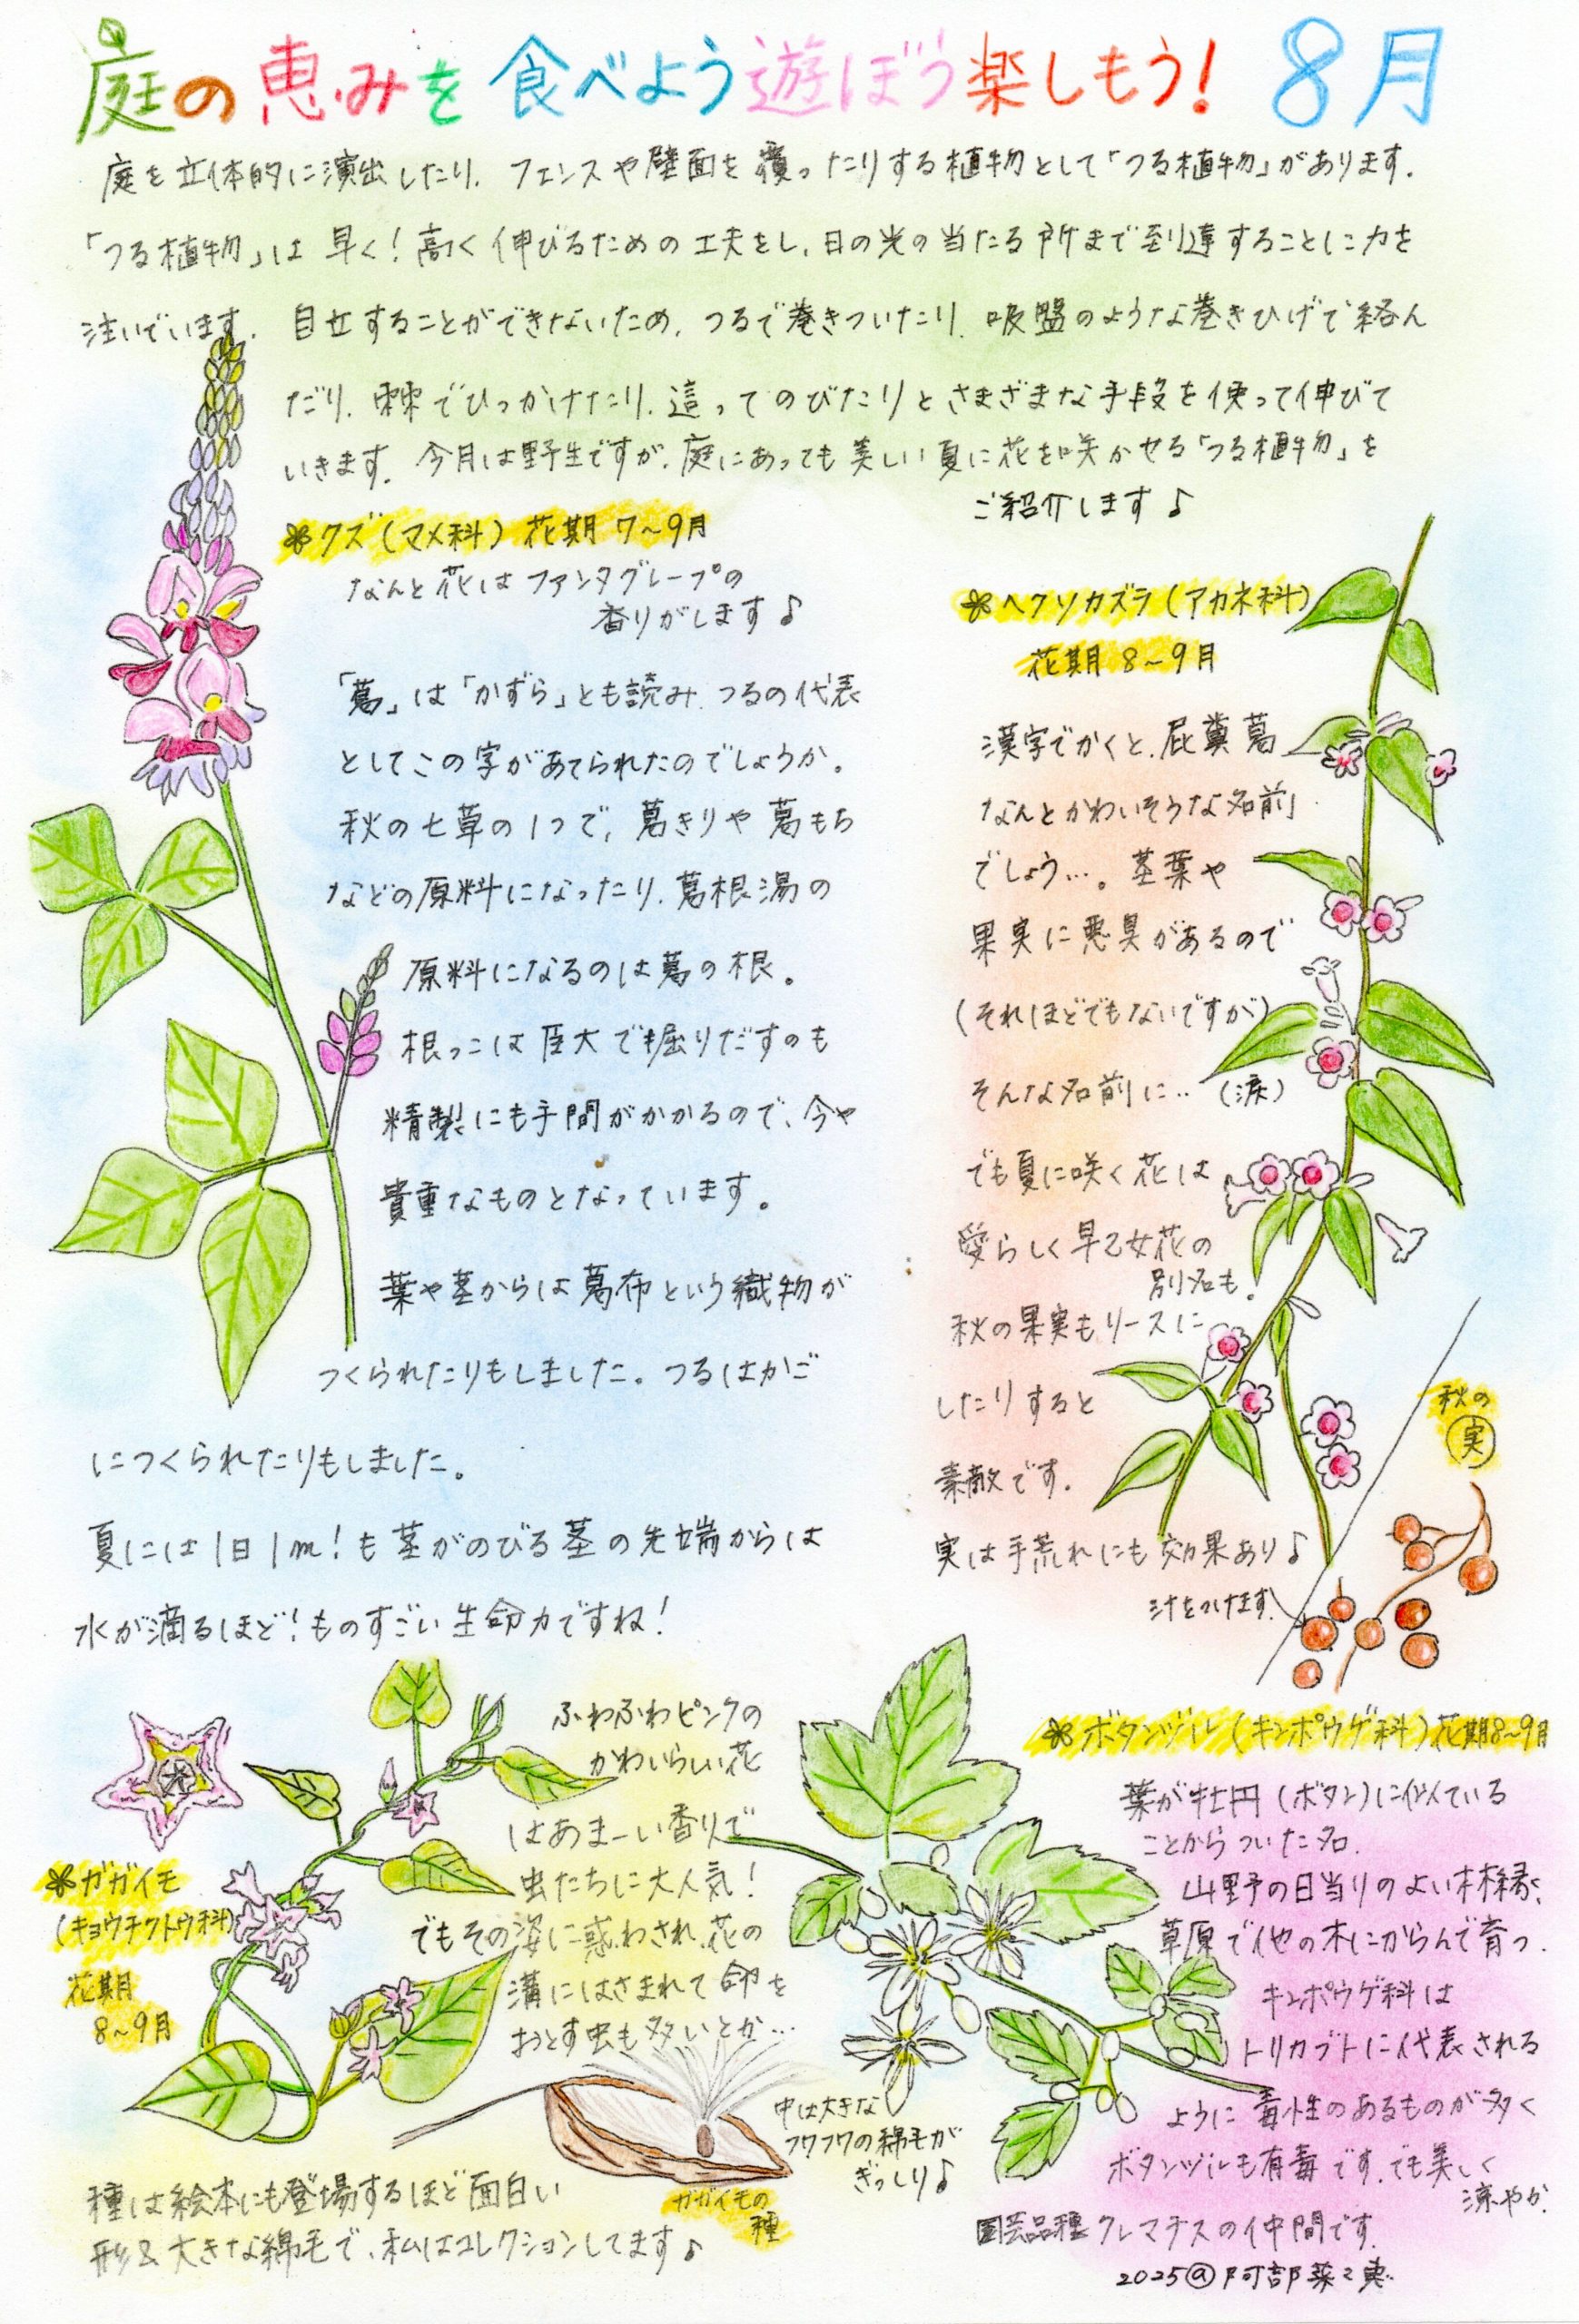 庭の恵みを食べよう遊ぼう楽しもう! 8月
庭を立体的に演出したり、フェンスや壁面を覆ったりする植物として「つる植物」があります。
「つる植物」は早く!高く伸びるための工夫をし、日の光の当たる所まで到達することに力を
注いでいます。自立することができないため、つるで巻きついたり、吸盤のような巻きひげで絡ん
だり、棘でひっかけたり、這ってのびたりとさまざまな手段を使って伸びて
いきます。今月は野生ですが、庭にあっても美しい夏に花を咲かせる「つる植物」を
ご紹介します♪
クズ(マメ科) 花期 7~9月
なんと花はファンタグレープの
香りがします♪
「葛」は「かずら」とも読み、つるの代表
としてこの字があてられたのでしょうか。
秋の七草の1つで、葛きりや葛もち
などの原料になったり、葛根湯の
原料になるのは葛の根。
根っこは巨大で掘りだすのも
精製にも手間がかかるので、今や
貴重なものとなっています。
葉や茎からは葛布という織物が
つくられたりもしました。つるはかご
につくられたりもしました。
夏には1日1m!も茎がのびる茎の先端からは
水が滴るほど!ものすごい生命力ですね!
ヘクソカズラ(アカネ科)
花期 8~9月
漢字でかくと、屁糞葛
なんとかわいそうな名前
でしょう…。茎葉や
果実に悪臭があるので
(それほどでもないですが)
そんな名前に‥(涙)
でも夏に咲く花は
愛らしく早乙女花の
別名も!
秋の果実もリースに
したりすると
素敵です。
実は手荒れにも効果あり♪
汁をつけます。
秋の
実
ガガイモ
(キョウチクトウ科)
花期
8~9月
ふわふわピンクの
かわいらしい花
はあまーい香りで
虫たちに大人気!
でもその姿に惑わされ、花の
溝にはさまれて命を
おとす虫も多いとか…
中は大きな
フワフワの綿毛が
ぎっしり♪
ガガイモの
種
種は絵本にも登場するほど面白い
形&大きな綿毛で、私はコレクションしてます♪
ボタンヅル(キンポウゲ科)花期8~9月
葉が牡丹(ボタン)に似ている
ことからついた名。
山野の日当りのよい林縁、
草原で他の木にからんで育つ。
キンポウゲ科は
トリカブトに代表される
ように毒性のあるものが多く
ボタンヅルも有毒です。でも美しく
涼やか。
園芸品種クレマチスの仲間です。
2025@阿部菜々恵